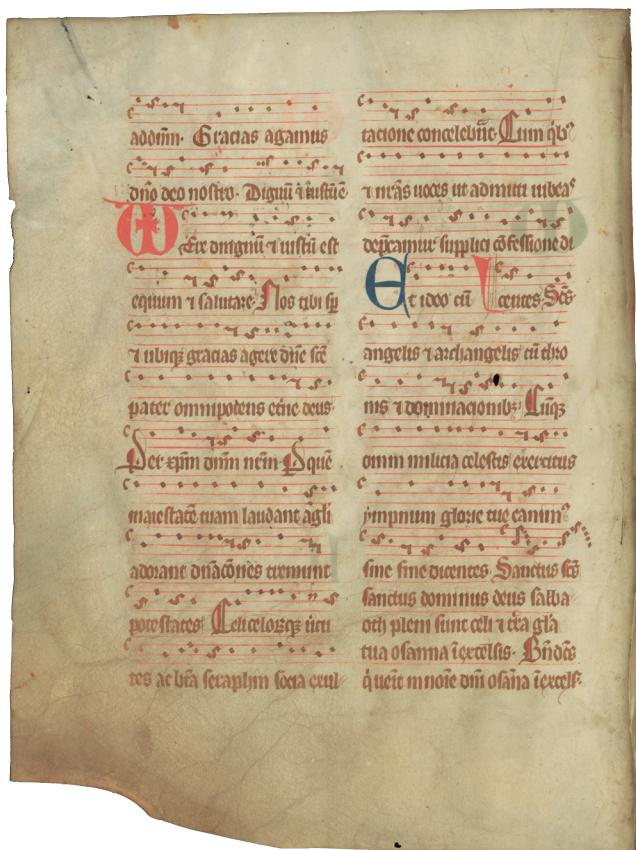 ad dñm. Gracias agamus
dño deo nostro. Dignũ ⁊ iustũ ẽ
Ere dingnũ ⁊ iustũ est
equum ⁊ salutare. Nos tibi sp̱
⁊ ubiqꝫ gracias agere dñe scẽ
pater omnipotens etẽne deus.
Per xp̃m dñm nr̃m. P quẽ
maiestatẽ tuam laudant ãgli
adorant dñacõnes tremunt
potestates. Celi celorũqꝫ uirtu
tes ac bñta seraphin socia exul
tacione concelebrãt. Cum qͥbꝰ
⁊ nr̃as uoces ut admitti iubeaꝰ
dep̃camur supplici cõfessione di
Et ideo cũ
centes. Scs̃
angelis ⁊ archangelis cũ thro
nis ⁊ dominacionibꝫ. Cũqꝫ
omni milicia celestis exercitus
ympnum glorie tue canimꝰ
sine fine dicentes. Sanctus scs̃
sanctus dominus deus saba
oth pleni sunt celi ⁊ tr̃a glã
tua osanna ĩ excelsis. Bñdcs̃
qͥ uenit in noĩe dñi osãna ĩ excels̃.